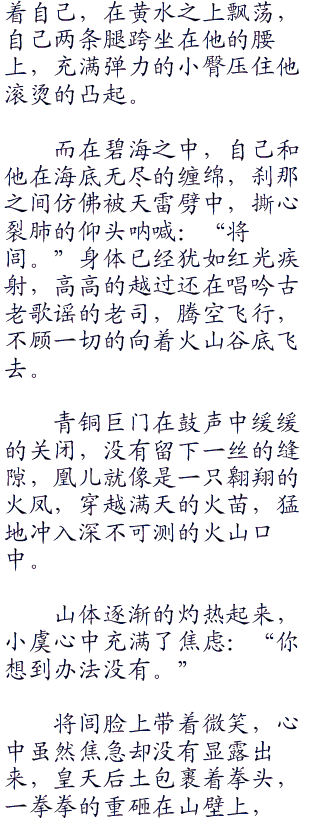 着自己，在黄水之上飘荡，
自己两条腿跨坐在他的腰
上，充满弹力的小臀压住他
滚烫的凸起。
而在碧海之中，自己和
他在海底无尽的缠绵，刹那
之间仿佛被天雷劈中，撕心
裂肺的仰头呐喊：“将
闾。”身体已经犹如红光疾
射，高高的越过还在唱吟古
老歌谣的老司，腾空飞行，
不顾一切的向着火山谷底飞
去。
青铜巨门在鼓声中缓缓
的关闭，没有留下一丝的缝
隙，凰儿就像是一只翱翔的
火凤，穿越满天的火苗，猛
地冲入深不可测的火山口
中。
山体逐渐的灼热起来，
小虞心中充满了焦虑：“你
想到办法没有。”
将闾脸上带着微笑，心
中虽然焦急却没有显露出
来，皇天后土包裹着拳头，
一拳拳的重砸在山壁上，